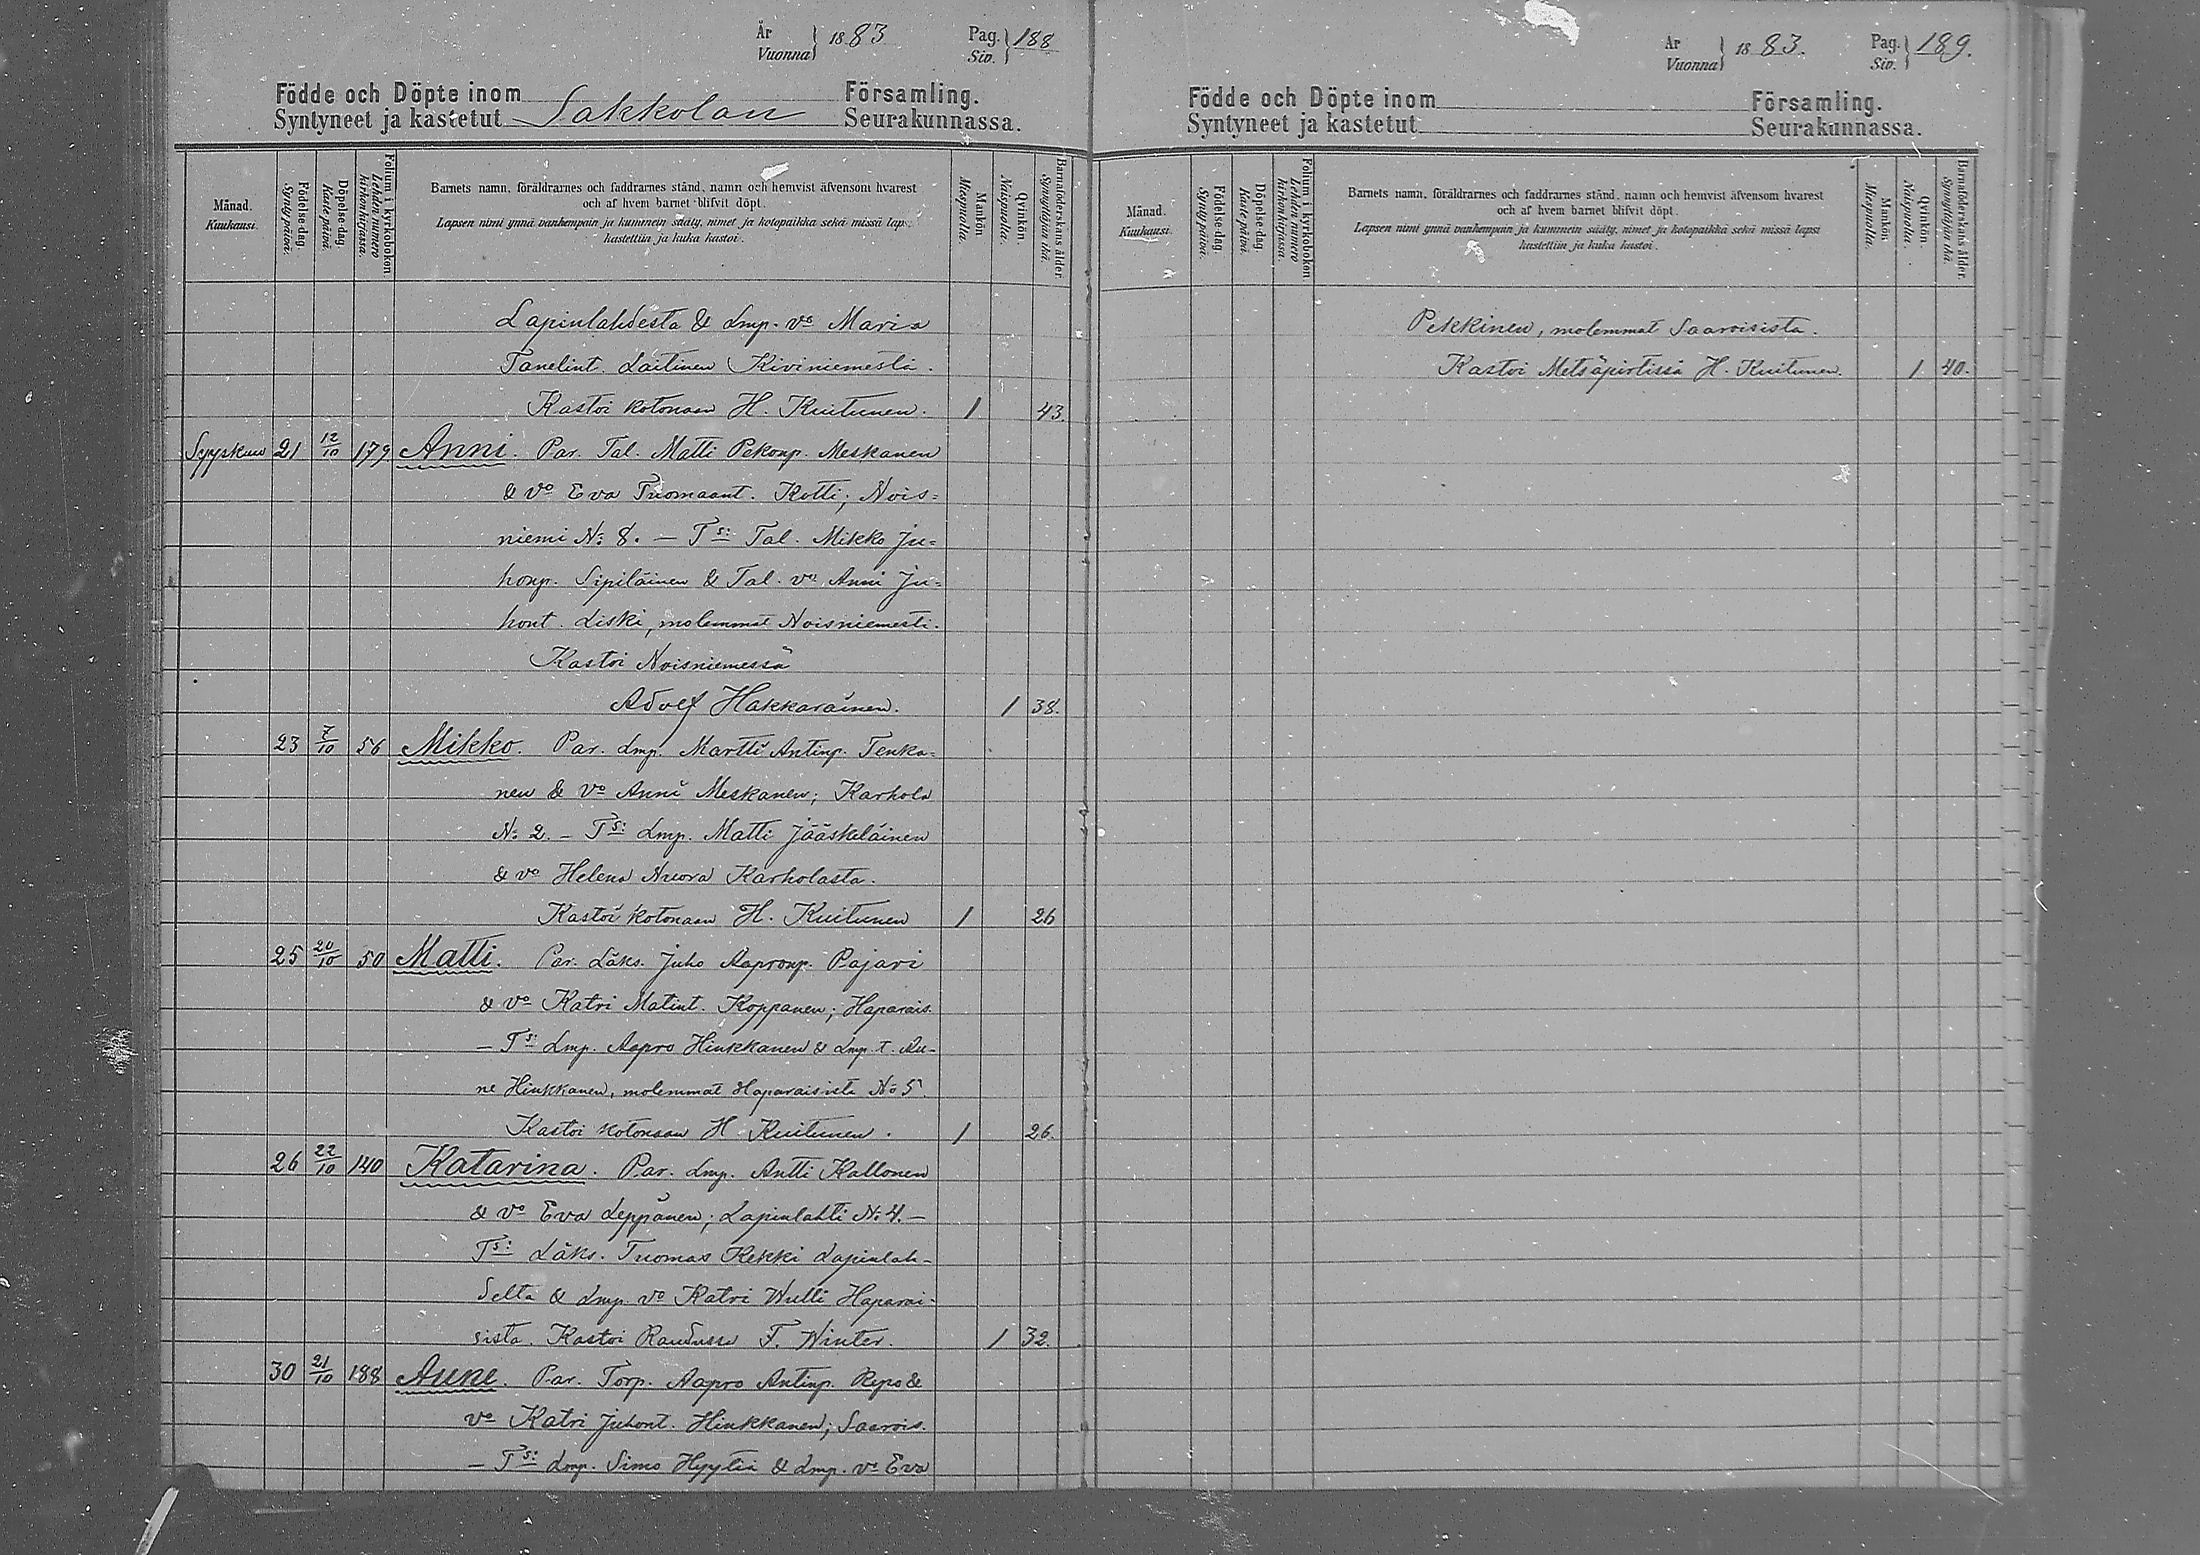 År
Vuonna } 1883
Pag.
Siv. } 188
Födde och Döpte inom Församling.
Syntyneet ja kastetut Sakkolan Seurakunnassa.
Månad.
Kuukausi.
Födelse-dag.
Synty päivä.
Döpelse-dag.
Kaste päivä.
Folium i kyrkoboken
Lehden numero
kirkonkirjassa.
Barnets namn, föräldrarnes och faddrarnes stånd, namn och hemvist äfvensom hvarest
och af hvem barnet blifvit döpt.
Lapsen nimi ynnä vanhempain ja kummein sääty, nimet ja kotopaikka sekä missä laps:
kastettiin ja kuka kastoi.
Mankön
Miespuolia.
Qvinkön.
Naispuolia.
Barnaföderskans ålder.
Synnyttäjän ikä.
Lapinlahdesta & Lmp. vo Maria
Tanelint. Laitinen Kiviniemestä.
Kastoi kotonaan H. Kuitunen. 1 43.
Syyskuu 21 12/10 179 Anni. Par. Tal. Matti Pekonp. Meskanen
& vo Eva Tuomaant. Kotti; Nois=
niemi No 8. — Ts: Tal. Mikko Ju=
honp. Sipiläinen & Tal. vo Anni Ju=
hont. Liski, molemmat Noisniemesti.
Kastoi Noisniemessä
Adolf Hakkarainen. 1 38.
23 7/10 56 Mikko. Par. Lmp. Martti Antinp. Tenka=
nen & vo Anni Meskanen; Karhola
No 2. — Ts: Lmp. Matti Jääskeläinen
& vo Helena Nuora Karholasta.
Kastoi kotonaan H. Kuitunen 1 26
25 20/10 50 Matti. Par. Läks. Juho Aapronp. Pajari
& vo Katri Matint. Koppanen; Haparais.
— Ts: Lmp. Aapro Hinkkanen & Lmp. t. An-
ne Hinkkanen, molemmat Haparaisista No 5.
Kastoi kotonaan H. Kuitunen. 1 26.
26 22/10 140 Katarina. Par. Lmp. Antti Kallonen
& vo Eva Leppänen; Lapinlahti No 4. —
Ts: Läks. Tuomas Kekki Lapinlah-
delta & Lmp. vo Katri Wulli Haparai-
sista. Kastoi Raudussa F. Winter. 1 32.
30 21/10 188 Anne. Par. Torp. Aapro Antinp. Repo &
vo Katri Juhont. Hinkkanen; Saarois.
— Ts: Lmp. Simo Hyytiä & Lmp. vo Eva
År
Vuonna } 1883.
Pag.
Siv. } 189.
Födde och Döpte inom Församling.
Syntyneet ja kastetut Seurakunnassa.
Månad.
Kuukausi.
Födelse-dag.
Synty päivä.
Döpelse-dag.
Kaste päivä.
Folium i kyrkoboken
Lehden numero
kirkonkirjassa.
Barnets namn, föräldrarnes och faddrarnes stånd, namn och hemvist äfvensom hvarest
och af hvem barnet blifvit döpt.
Lapsen nimi ynnä vanhempain ja kummein sääty, nimet ja kotopaikka sekä missä lapsi
kastettiin ja kuka kastoi.
Mankön
Miespuolia.
Qvinkön.
Naispuolia.
Barnaföderskans ålder.
Synnyttäjän ikä.
Pekkinen, molemmat Saaroisista.
Kastoi Metsäpirtissä H. Kuitunen. 1 40.